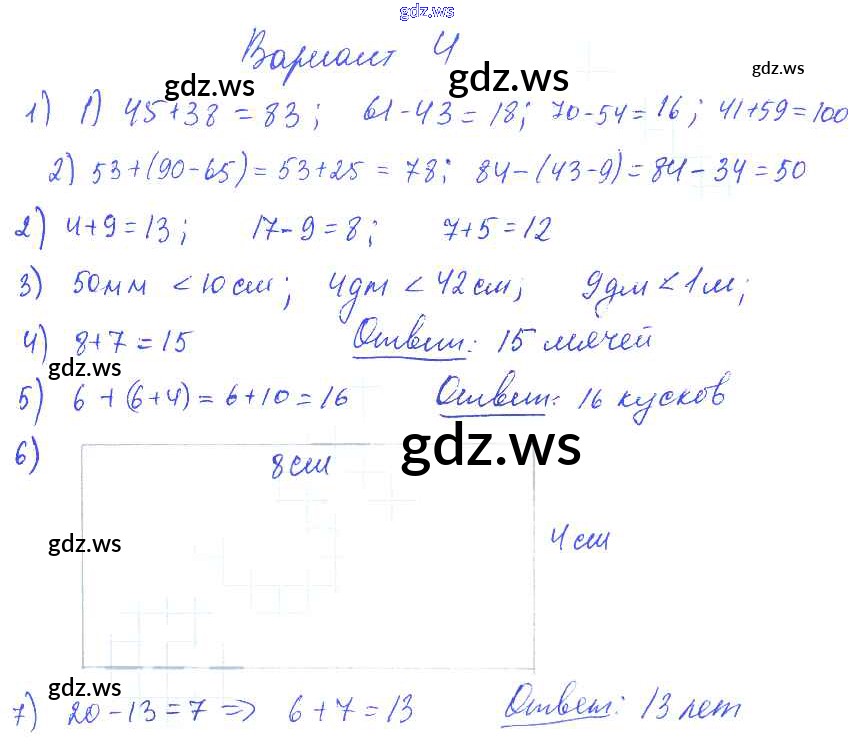 gdz.ws
Вариант 4
gdz.ws gdz.ws gdz.ws
1) 1) 45+38=83; 61-43=18; 70-54=16; 41+59=100
2) 53+(90-65)=53+25=78; 84-(43-9)=84-34=50
2) 4+9=13; 17-9=8; 7+5=12
3) 50мм < 10см; 4дм < 42см; 9дм < 1м;
4) 8+7=15 Ответ: 15 мячей
gdz.ws
5) 6+(6+4)=6+10=16 Ответ: 16 кусков
6)
gdz.ws
8см
4см
gdz.ws
gdz.ws
7) 20-13=7 => 6+7=13 Ответ: 13 лет